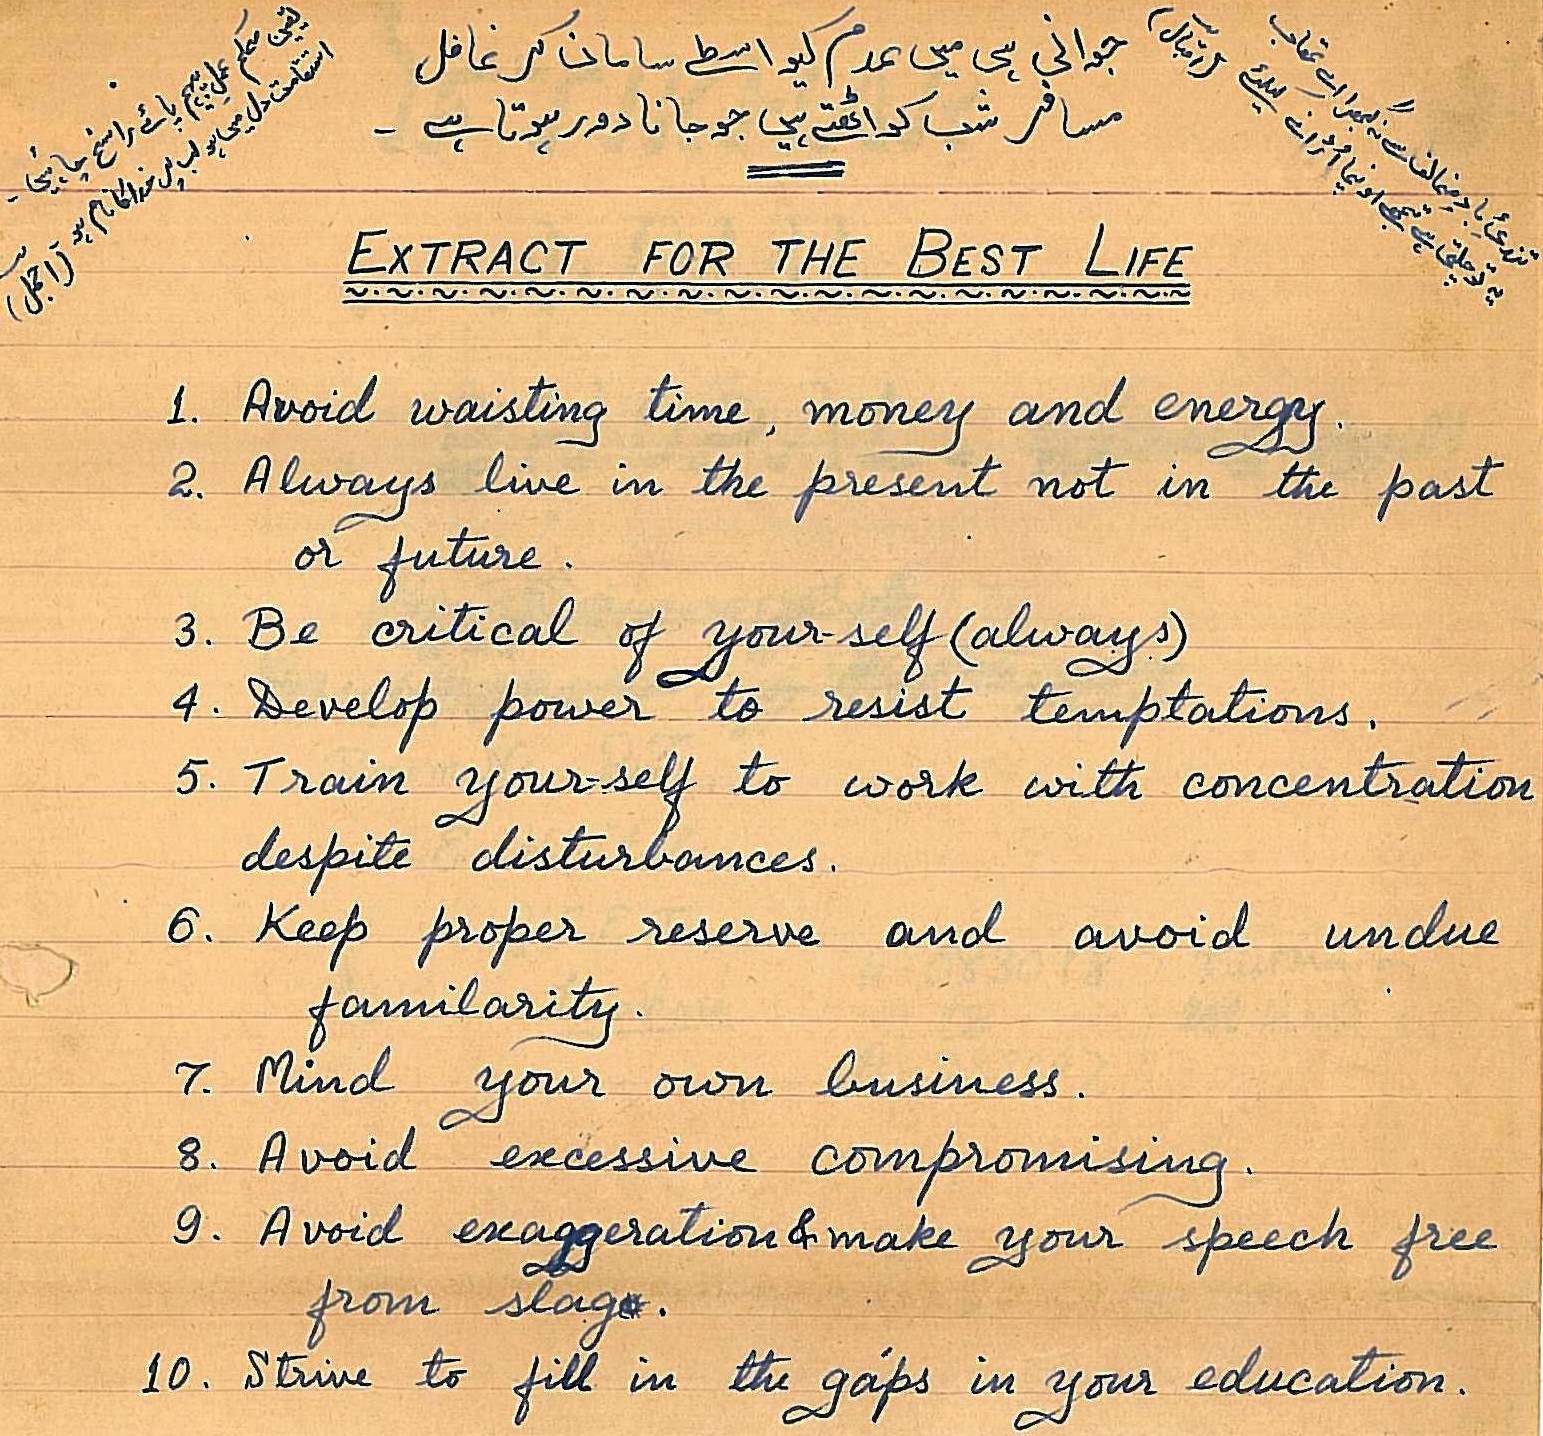 جوانی ہی میں عدم کیواسطے سامان کر غافل
مسافر شب کو اٹھتے ہیں جو جانا دور ہوتا ہے -
تندئ باد مخالف سے نہ گھبرا اے عقاب
یہ تو چلتی ہے تجھے اونچا اُڑانے کیلئے (اقبال)
یقیں محکم عمل پیہم پائے راسخ چاہیئں -
استقامت دل میں ہو لب پر خدا کا نام ہو (اجمل)
EXTRACT FOR THE BEST LIFE
1. Avoid waisting time, money and energy.
2. Always live in the present not in the past
or future.
3. Be critical of your-self (always)
4. Develop power to resist temptations.
5. Train your-self to work with concentration
despite disturbances.
6. Keep proper reserve and avoid undue
familarity.
7. Mind your own business.
8. Avoid excessive compromising.
9. Avoid exaggeration & make your speech free
from slag.
10. Strive to fill in the gaps in your education.